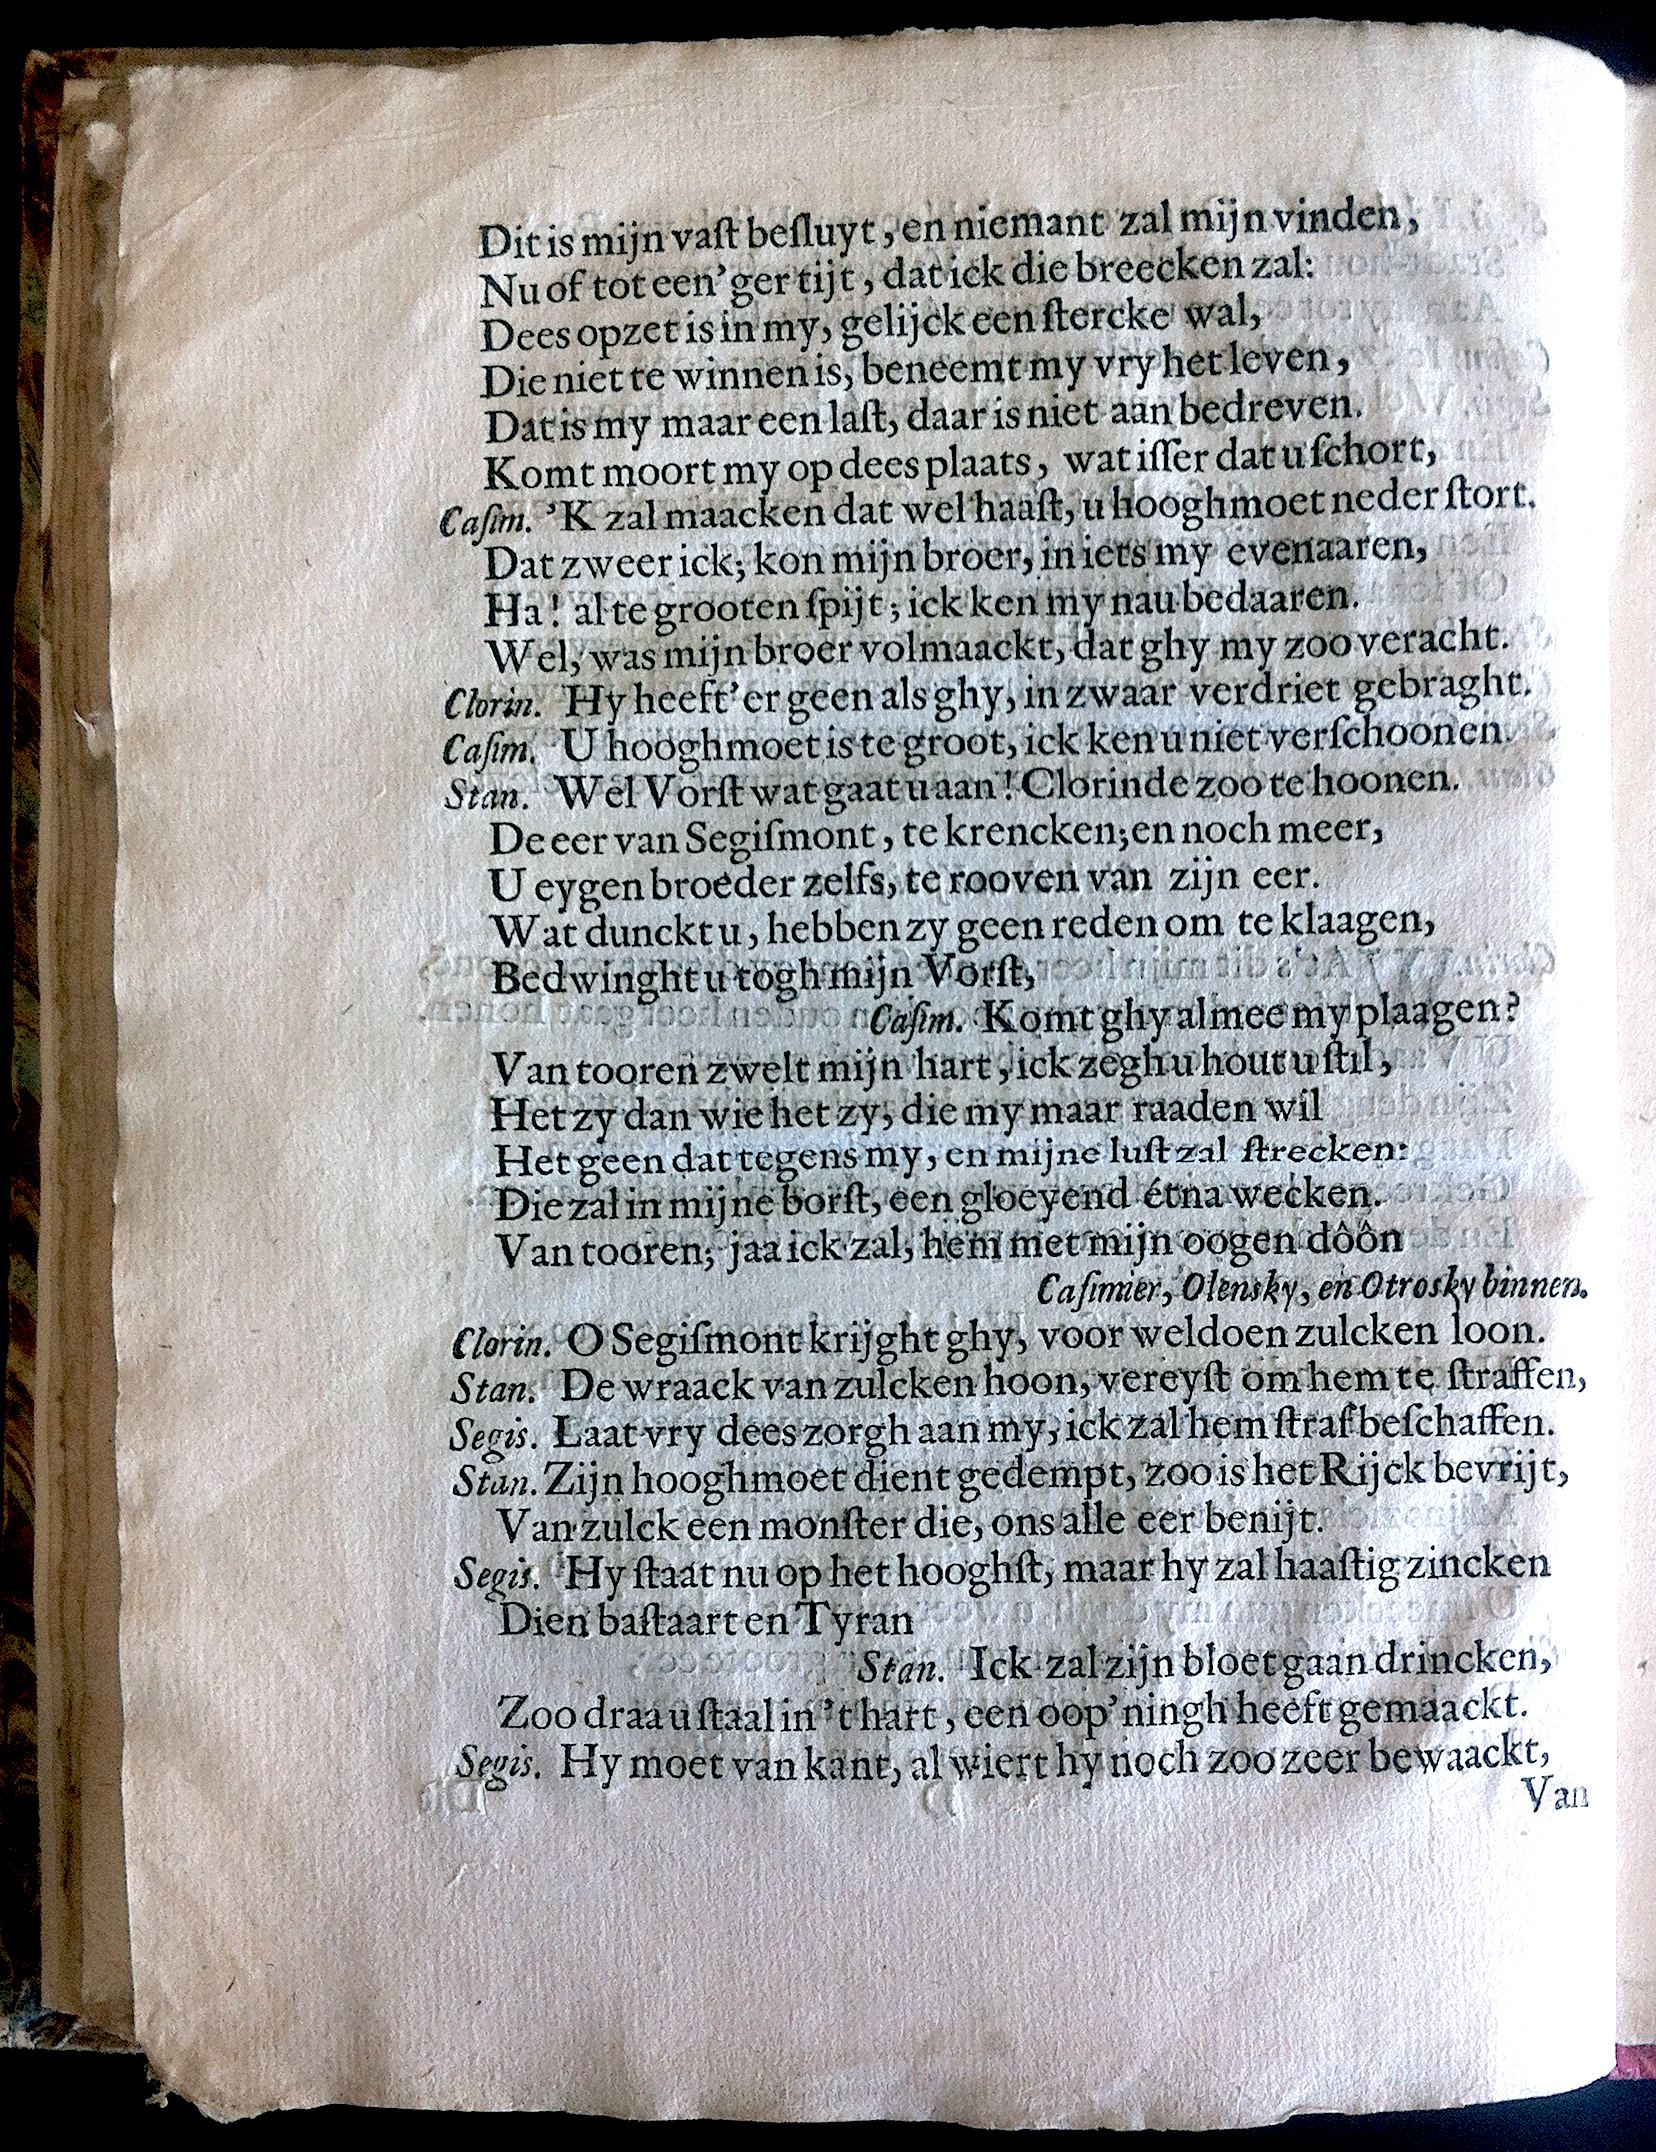 Dit is mijn vaſt beſluyt, en niemant zal mijn vinden,
Nu of tot een'ger tijt, dat ick die breecken zal:
Dees opzet is in my, gelijck een ſtercke wal,
Die niet te winnen is, beneemt my vry het leven,
Dat is my maar een laſt, daar is niet aan bedreven.
Komt moort my op dees plaats, wat iſſer dat u ſchort,
Caſim. 'K zal maacken dat wel haaſt, u hooghmoet neder ſtort.
Dat zweer ick; kon mijn broer, in iets my evenaaren,
Ha! al te grooten ſpijt; ick ken my nau bedaaren.
Wel, was mijn broer volmaackt, dat ghy my zoo veracht.
Clorin. Hy heeft'er geen als ghy, in zwaar verdriet gebraght.
Caſim. U hooghmoet is te groot, ick ken u niet verſchoonen.
Stan. Wel Vorſt wat gaat u aan! Clorinde zoo te hoonen.
De eer van Segiſmont, te krencken; en noch meer,
U eygen broeder zelfs, te rooven van zijn eer.
Wat dunckt u, hebben zy geen reden om te klaagen,
Bedwinght u togh mijn Vorſt,
Caſim. Komt ghy al mee my plaagen?
Van tooren zwelt mijn hart, ick zegh u hout u ſtil,
Het zy dan wie het zy, die my maar raaden wil
Het geen dat tegens my, en mijne luſt zal ſtrecken:
Die zal in mijne borſt, een gloeyend étna wecken.
Van tooren; jaa ick zal, hem met mijn oogen dôôn
Caſimier, Olensky, en Otrosky binnen.
Clorin. O Segiſmont krijght ghy, voor weldoen zulcken loon.
Stan. De wraack van zulcken hoon, vereyſt om hem te ſtraffen,
Segis. Laat vry dees zorgh aan my, ick zal hem ſtraf beſchaffen.
Stan. Zijn hooghmoet dient gedempt, zoo is het Rijck bevrijt,
Van zulck een monſter die, ons alle eer benijt.
Segis. Hy ſtaat nu op het hooghſt, maar hy zal haaſtig zincken
Dien baſtaart en Tyran
Stan. Ick zal zijn bloet gaan drincken,
Zoo draa u ſtaal in 't hart, een oop'ningh heeft gemaackt.
Segis. Hy moet van kant, al wiert hy noch zoo zeer bewaackt,
Van